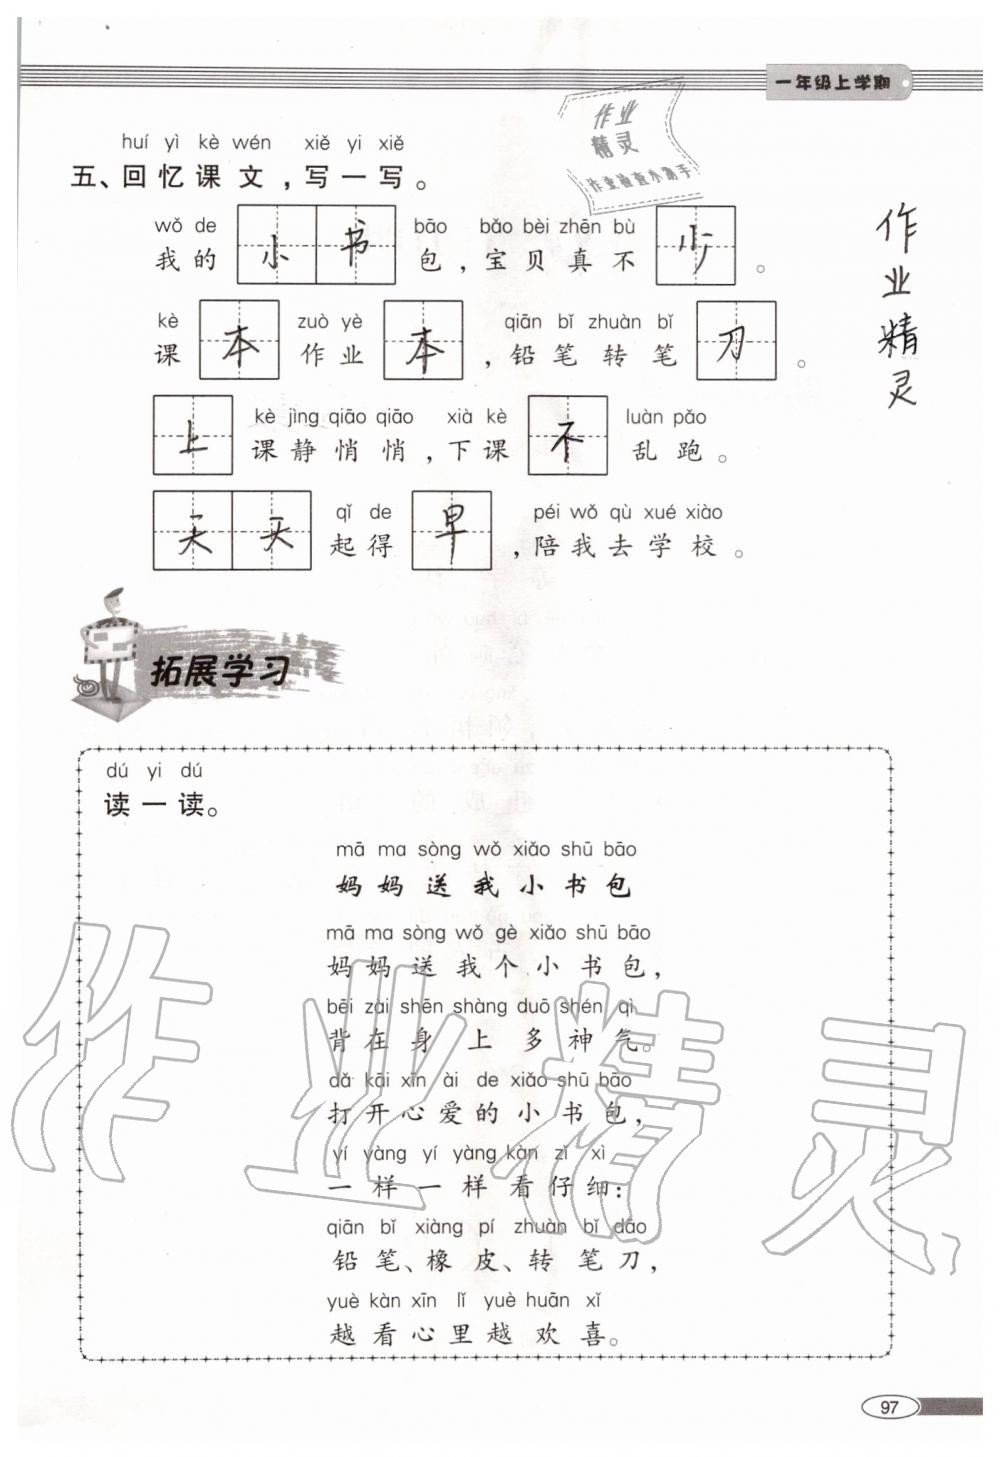 一年级上学期
作业
精灵
作业检查小助手
huí yì kè wén xiě yi xiě
五、回忆课文，写一写。
wǒ de bāo bǎo bèi zhēn bù
我的小书包，宝贝真不少。
kè zuò yè qiān bǐ zhuàn bǐ
课本作业本，铅笔转笔刀。
kè jìng qiāo qiāo xià kè luàn pǎo
上课静悄悄，下课不乱跑。
qǐ de péi wǒ qù xué xiào
天天起得早，陪我去学校。
作业精灵
拓展学习
dú yi dú
读一读。
mā ma sòng wǒ xiǎo shū bāo
妈妈送我小书包
mā ma sòng wǒ gè xiǎo shū bāo
妈妈送我个小书包，
bēi zài shēn shàng duō shén qì
背在身上多神气。
dǎ kāi xīn ài de xiǎo shū bāo
打开心爱的小书包，
yí yàng yí yàng kàn zǐ xì
一样一样看仔细：
qiān bǐ xiàng pí zhuàn bǐ dāo
铅笔、橡皮、转笔刀，
yuè kàn xīn lǐ yuè huān xǐ
越看心里越欢喜。
作业精灵
97